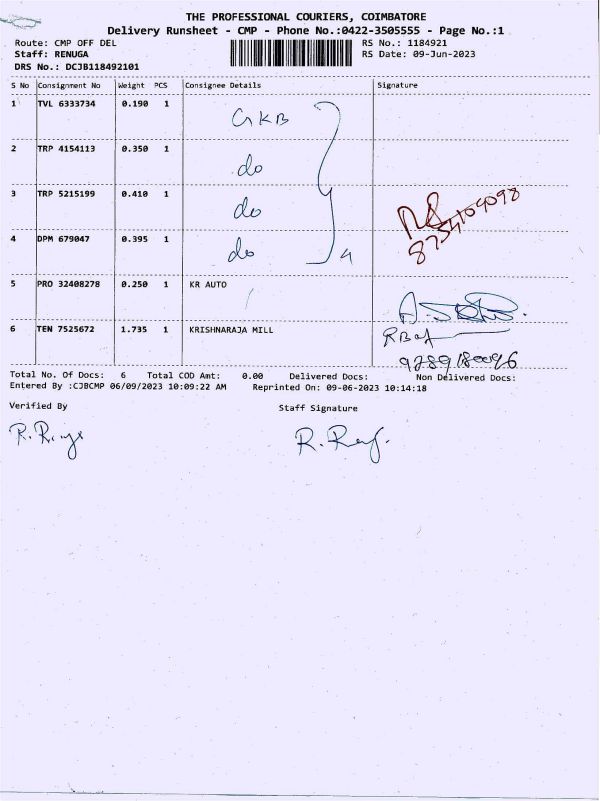 THE PROFESSIONAL COURIERS, COIMBATORE
Delivery Runsheet - CMP - Phone No.:0422-3505555 - Page No.:1
Route: CMP OFF DEL RS No.: 1184921
Staff: RENUGA RS Date: 09-Jun-2023
DRS No.: DCJB118492101
S No Consignment No Weight PCS Consignee Details Signature
1 TVL 6333734 0.190 1 GKB
2 TRP 4154113 0.350 1 do
3 TRP 5215199 0.410 1 do
4 DPM 679047 0.395 1 do 4
5 PRO 32408278 0.250 1 KR AUTO
6 TEN 7525672 1.735 1 KRISHNARAJA MILL
Total No. Of Docs: 6 Total COD Amt: 0.00 Delivered Docs: Non Delivered Docs:
Entered By :CJBCMP 06/09/2023 10:09:22 AM Reprinted On: 09-06-2023 10:14:18
Verified By Staff Signature